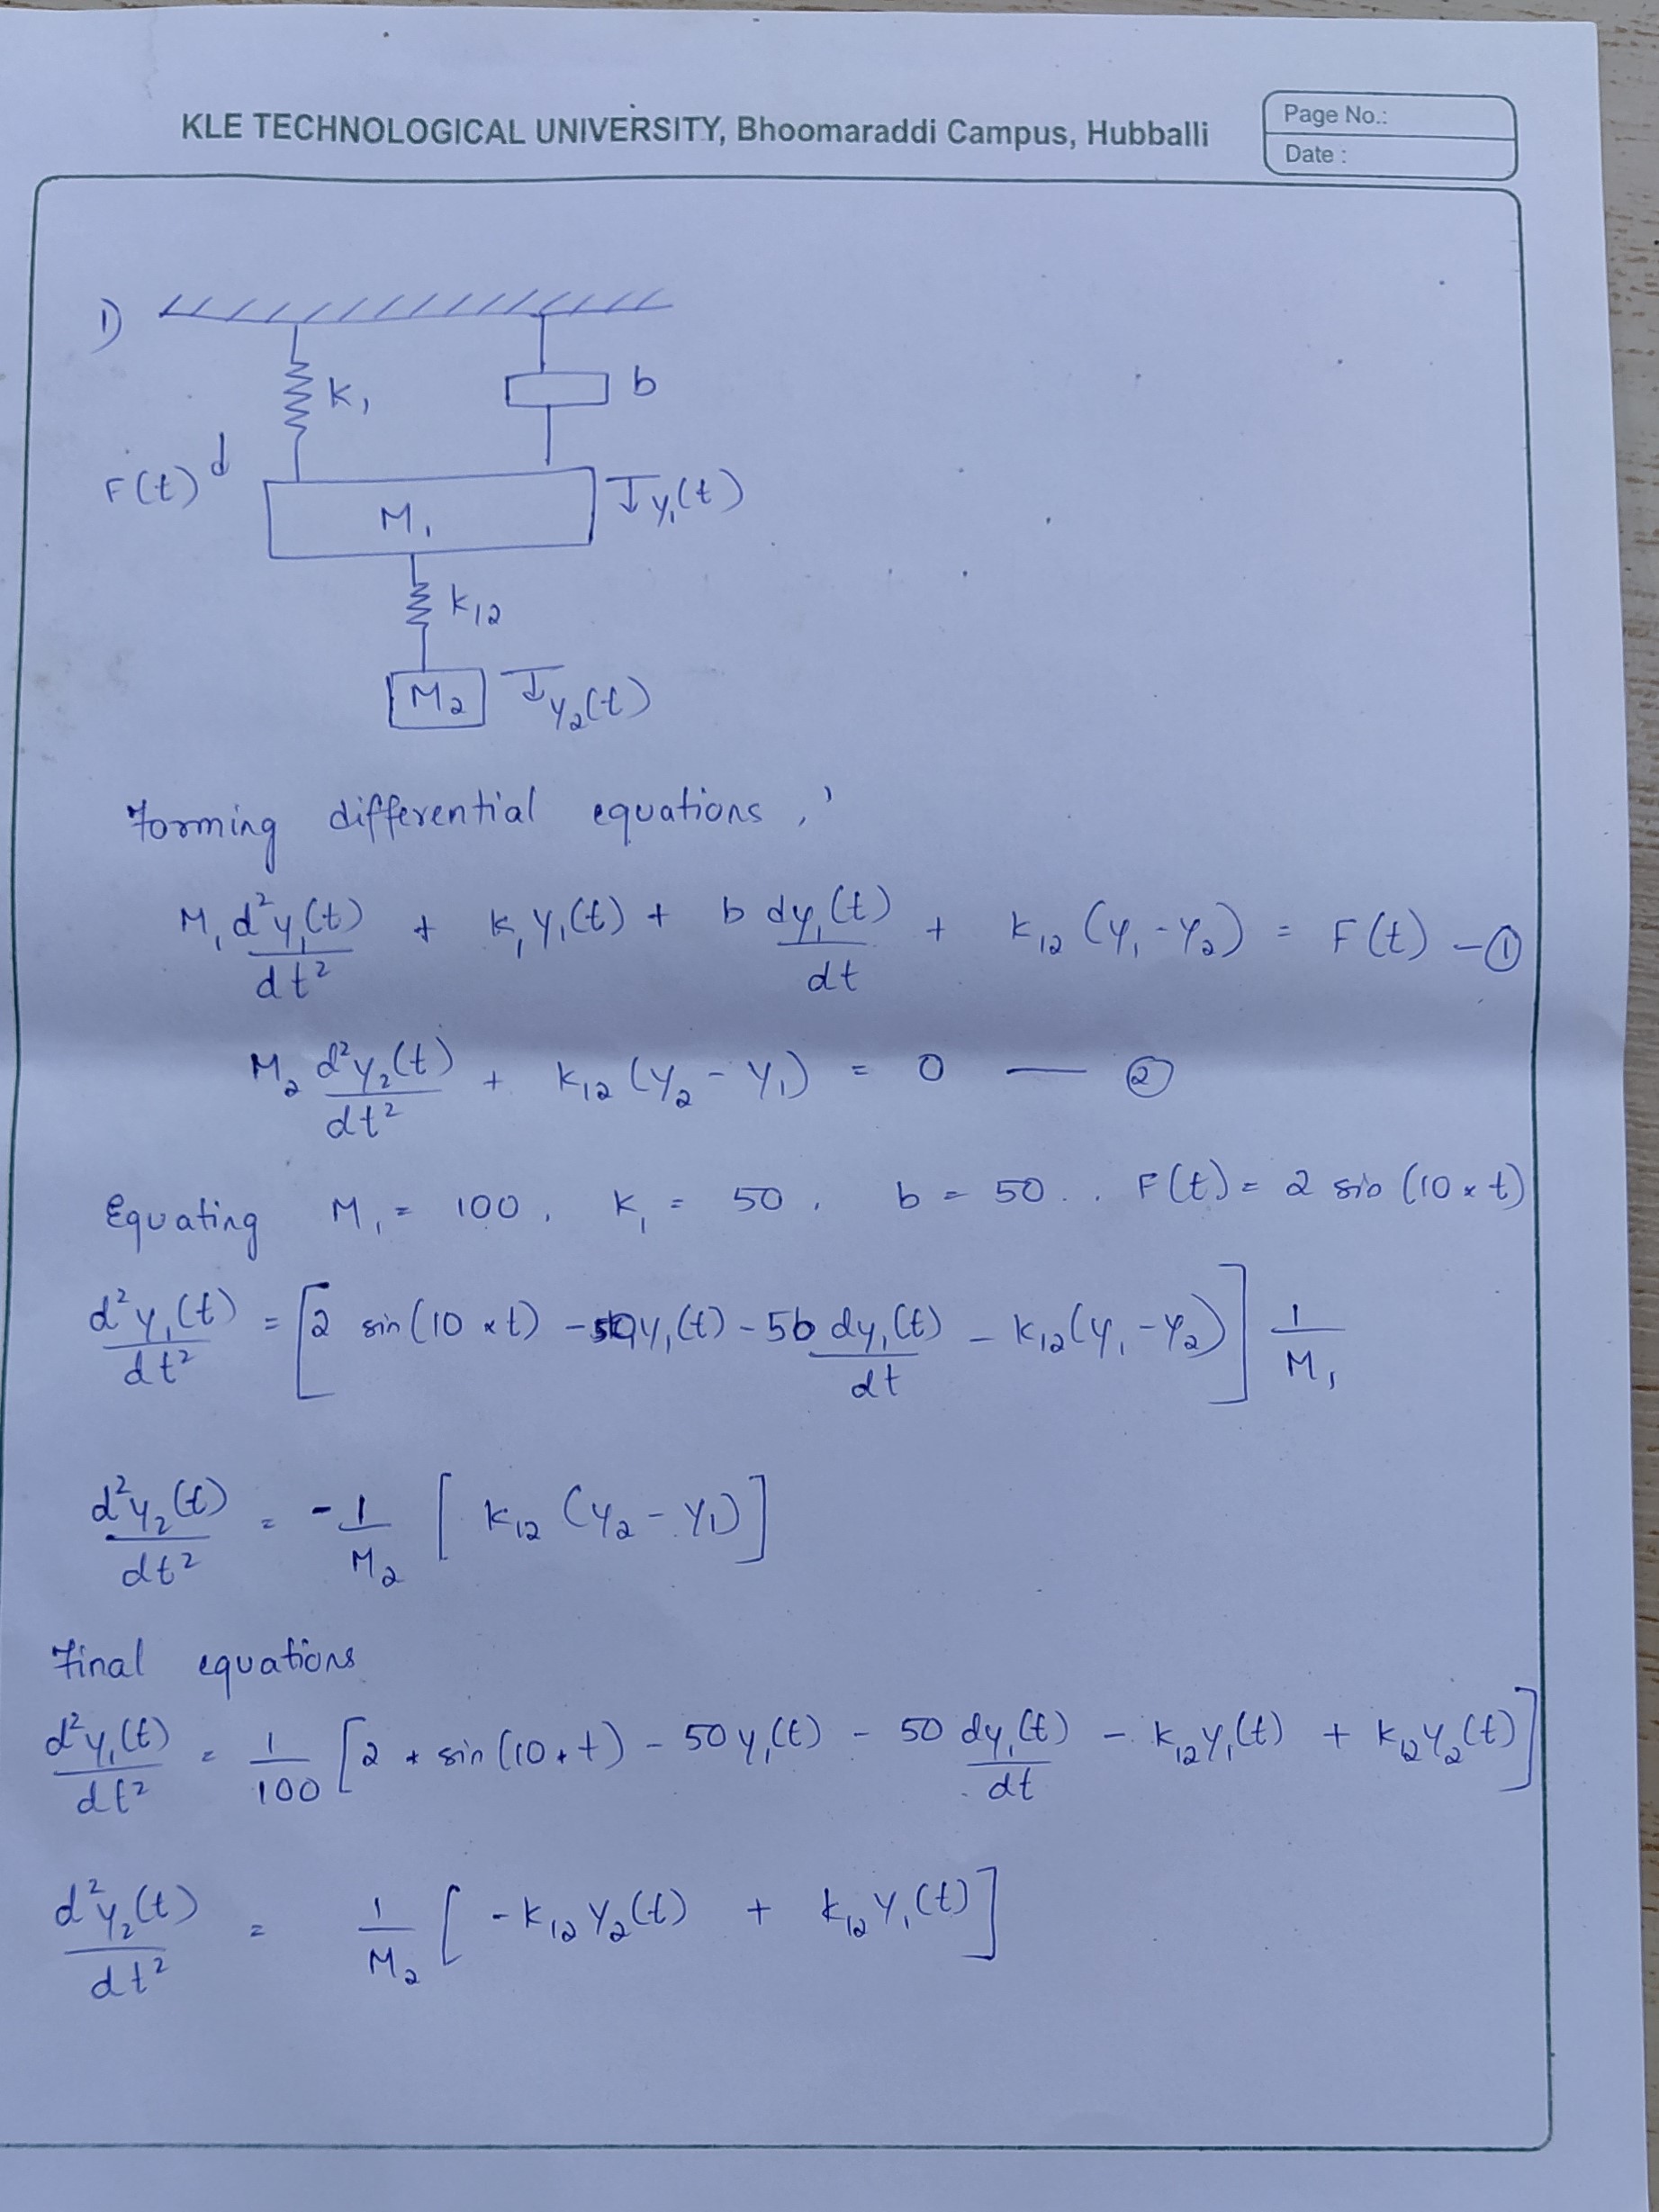 KLE TECHNOLOGICAL UNIVERSITY, Bhoomaraddi Campus, Hubballi
Page No.:
Date :
1)
K₁
b
F(t)
M₁
y₁(t)
K₁₂
M₂
y₂(t)
Forming differential equations,
M₁ d²y₁(t)/dt² + K₁y₁(t) + b dy₁(t)/dt + K₁₂(y₁-y₂) = F(t) - ①
M₂ d²y₂(t)/dt² + K₁₂(y₂-y₁) = 0 — ②
Equating M₁ = 100, K₁ = 50, b = 50.. F(t) = 2 sin(10 × t)
d²y₁(t)/dt² = [2 sin(10 × t) - 50y₁(t) - 50 dy₁(t)/dt - K₁₂(y₁-y₂)] 1/M₁
d²y₂(t)/dt² = -1/M₂ [K₁₂(y₂-y₁)]
Final equations
d²y₁(t)/dt² = 1/100 [2 * sin(10*t) - 50y₁(t) - 50 dy₁(t)/dt - K₁₂y₁(t) + K₁₂y₂(t)]
d²y₂(t)/dt² = 1/M₂ [-K₁₂y₂(t) + K₁₂y₁(t)]